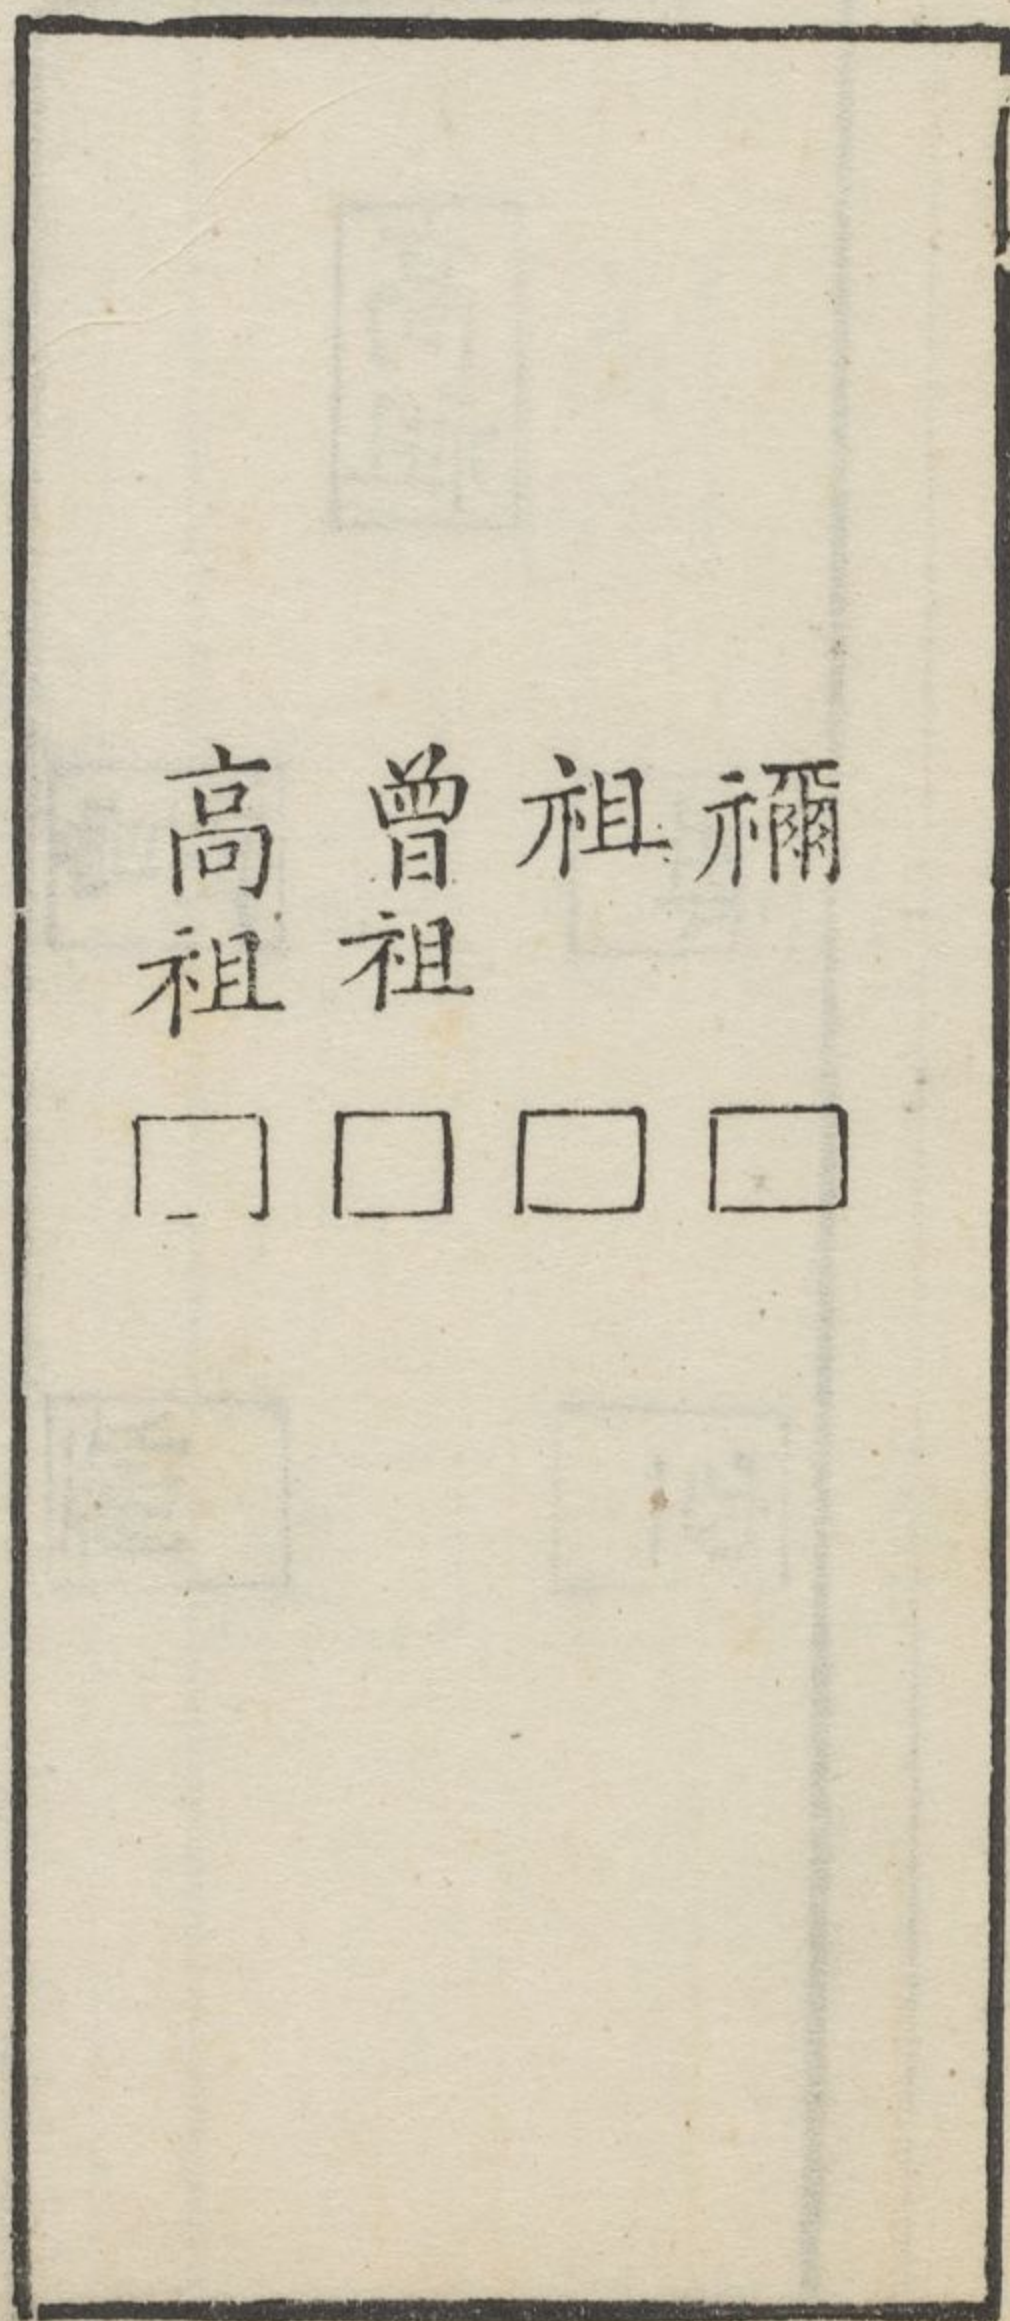 禰
祖
曾祖
高祖